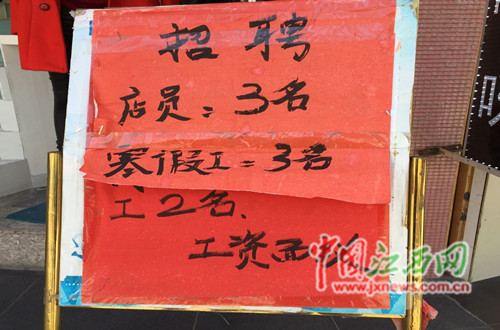 招聘
店员：3名
寒假工：3名
工2名、
工资面
中国江西网
www.jxnews.com.cn